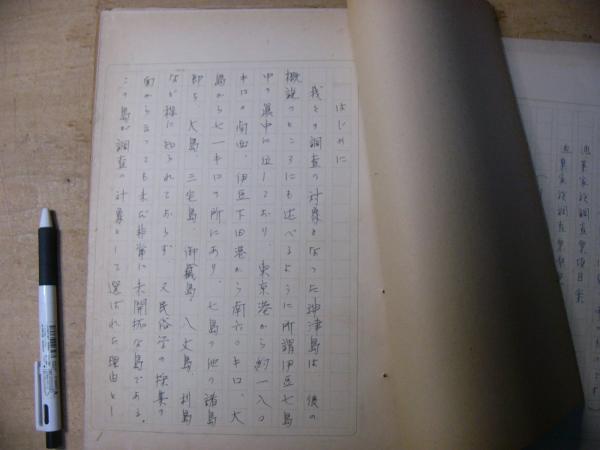 はじめに
我々の調査の対象となった神津島は、後の
概説のところにも述べるように所謂伊豆七島
中の真中に位しており、東京港から約一八〇
キロの南西、伊豆下田港から南六〇キロ、大
島から七一キロの所にあり、七島の他の諸島
即ち、大島、三宅島、御蔵島、八丈島、利島
など程に知られておらず、又民俗学の採集の
面から言っても未だ非常に未開拓な島である。
この島が調査の対象として選ばれた理由とし
漁業家族調査票項目案